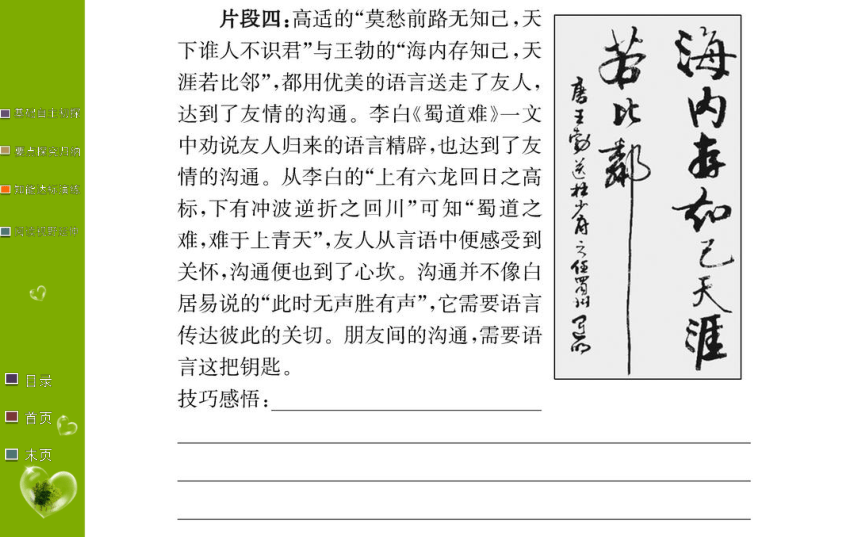 片段四:高适的“莫愁前路无知己,天
下谁人不识君”与王勃的“海内存知己,天
涯若比邻”,都用优美的语言送走了友人,
达到了友情的沟通。李白《蜀道难》一文
中劝说友人归来的语言精辟,也达到了友
情的沟通。从李白的“上有六龙回日之高
标,下有冲波逆折之回川”可知“蜀道之
难,难于上青天”,友人从言语中便感受到
关怀,沟通便也到了心坎。沟通并不像白
居易说的“此时无声胜有声”,它需要语言
传达彼此的关切。朋友间的沟通,需要语
言这把钥匙。
技巧感悟:
海内存知己天涯
若比鄰
唐王勃送杜少府之任蜀州
目录
首页
末页